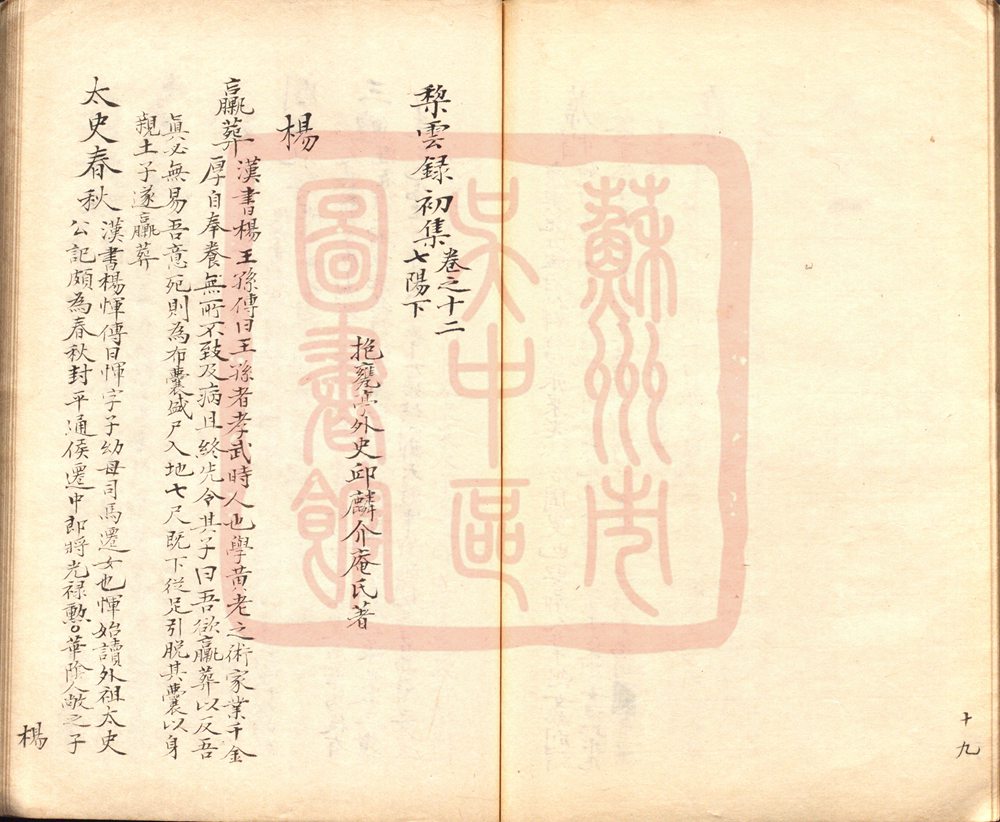 十九
梨雲録初集卷之十二
七陽下
抱甕亭外史邱麟介庵氏著
楊
臝葬漢書楊王孫傳曰王孫者孝武時人也學黃老之術家業千金
厚自奉養無所不致及病且終先令其子曰吾欲臝葬以反吾
眞必無易吾意死則為布囊盛尸入地七尺既下從足引脫其囊以身
親土子遂臝葬
太史春秋漢書楊惲傳曰惲字子幼母司馬遷女也惲始讀外祖太史
公記頗為春秋封平通侯遷中郎將光祿勲。華陰人敞之子
楊
蘇州市
吳中區
圖書館